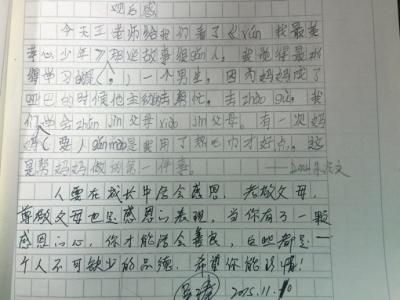 观后感
今天王老师给我们看了《xún 找最美
孝心少年》那些故事很gǎn人。我觉得最
得学习的是(。)一个男生,因为妈妈成了
的时候他主动去帮忙。去zhào gù。我
们学会zūn jìn父母xiào jìn父母。有一次妈
妈(要)gǎn mào是我用了热 才好点。这
是帮妈妈做的第一件事。
人要在成长中学会感恩,孝敬父母,
尊敬父母也是感恩的表现,当你有了一颗
感恩的心,你才能学会善良,这些都是一
个人不可缺少的品德,希望你能珍惜!
2015.11.